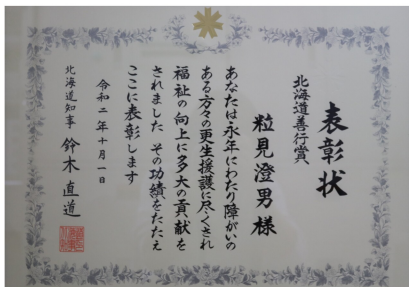 表彰状
北海道善行賞
粒見澄男様
あなたは永年にわたり障がいの
ある方々の更生援護に尽くされ
福祉の向上に多大の貢献を
されました その功績をたたえ
ここに表彰します
令和二年十月一日
北海道知事 鈴木直道